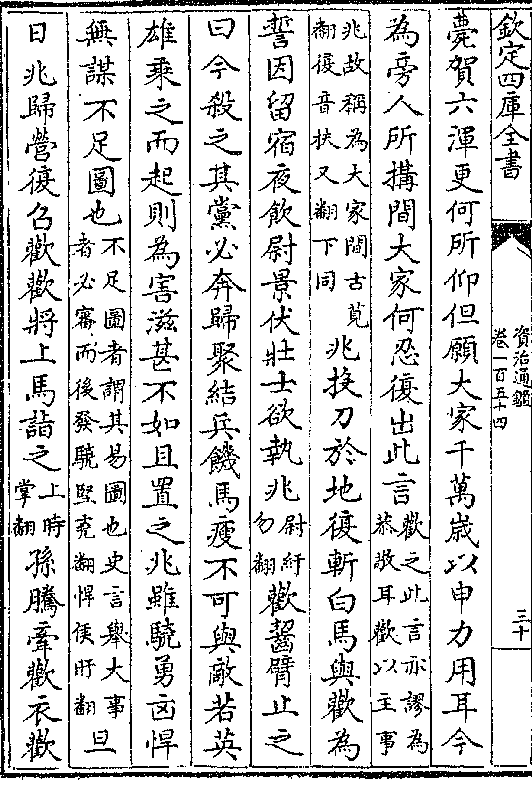 欽定四庫全書
資治通鑑
卷一百五十四
三十
薨賀六渾更何所仰但願大家千萬歳以申力用耳今
為旁人所搆間大家何忍復出此言
歡之此言亦謬為
恭敬耳歡以主事
兆故稱為大家間古莧
翻復音扶又翻下同
兆投刀於地復斬白馬與歡為
誓因留宿夜飲尉景伏壯士欲執兆
尉紆
勿翻
歡齧臂止之
曰今殺之其黨必奔歸聚結兵饑馬瘦不可與敵若英
雄乘之而起則為害滋甚不如且置之兆雖驍勇凶悍
無謀不足圖也
不足圖者謂其易圖也史言舉大事
者必審而後發驍堅堯翻悍侯旰翻
旦
日兆歸營復召歡歡將上馬詣之
上時
掌翻
孫騰牽歡衣歡